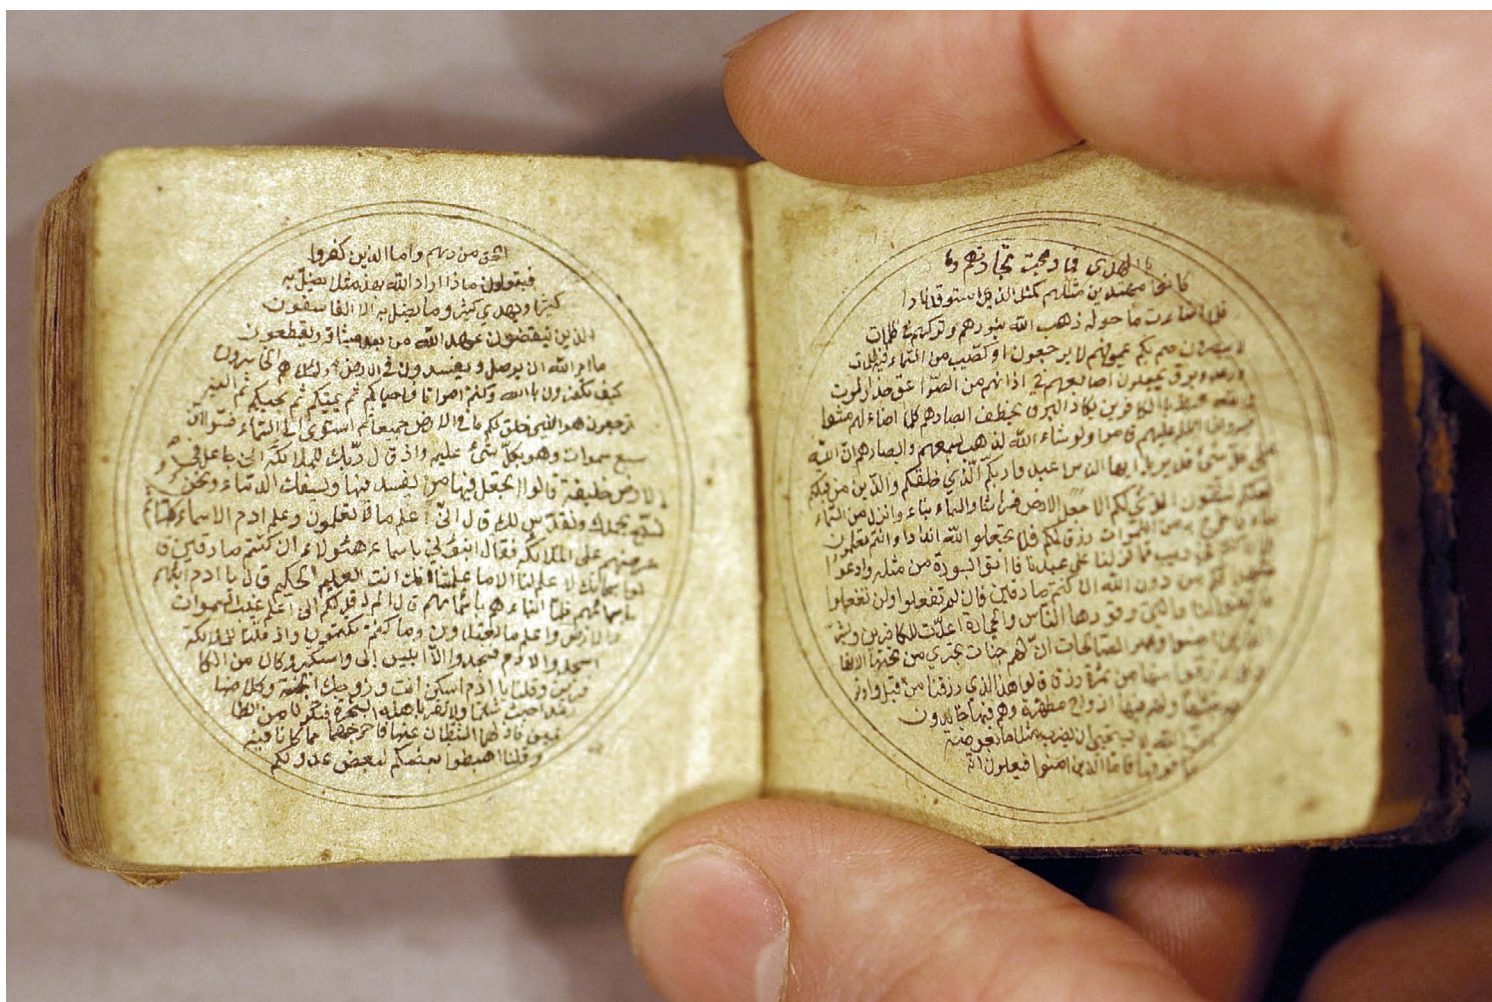 بالهدى فما ربحت تجارتهم وما
كانوا مهتدين مثلهم كمثل الذي استوقد نارا
فلما اضاءت ما حوله ذهب الله بنورهم وتركهم في ظلمات
لا يبصرون صم بكم عمي فهم لا يرجعون او كصيب من السماء فيه ظلمات
ورعد وبرق يجعلون اصابعهم في اذانهم من الصواعق حذر الموت
والله محيط بالكافرين يكاد البرق يخطف ابصارهم كلما اضاء لهم مشوا
فيه واذا اظلم عليهم قاموا ولو شاء الله لذهب بسمعهم وابصارهم ان الله
على كل شئ قدير يا ايها الناس اعبدوا ربكم الذي خلقكم والذين من قبلكم
لعلكم تتقون الذي جعل لكم الارض فراشا والسماء بناء وانزل من السماء
ماء فاخرج به من الثمرات رزقا لكم فلا تجعلوا لله اندادا وانتم تعلمون
وان كنتم في ريب مما نزلنا على عبدنا فاتوا بسورة من مثله وادعوا
شهداءكم من دون الله ان كنتم صادقين فان لم تفعلوا ولن تفعلوا
فاتقوا النار التي وقودها الناس والحجارة اعدت للكافرين وبشر
الذين امنوا وعملوا الصالحات ان لهم جنات تجري من تحتها الانها
ر كلما رزقوا منها من ثمرة رزقا قالوا هذا الذي رزقنا من قبل واتو
به متشابها ولهم فيها ازواج مطهرة وهم فيها خالدون
ان الله لا يستحيي ان يضرب مثلا ما بعوضة
فما فوقها فاما الذين امنوا فيعلمون انه
الحق من ربهم واما الذين كفروا
فيقولون ماذا اراد الله بهذا مثلا يضل به
كثيرا ويهدي كثيرا وما يضل به الا الفاسقين
الذين ينقضون عهد الله من بعد ميثاقه ويقطعون
ما امر الله ان يوصل ويفسدون في الارض اولئك هم الخاسرون
كيف تكفرون بالله وكنتم امواتا فاحياكم ثم يميتكم ثم يحييكم ثم اليه
ترجعون هو الذي خلق لكم ما في الارض جميعا ثم استوى الى السماء فسواهن
سبع سموات وهو بكل شئ عليم واذ قال ربك للملائكة اني جاعل في
الارض خليفة قالوا اتجعل فيها من يفسد فيها ويسفك الدماء ونحن
نسبح بحمدك ونقدس لك قال اني اعلم ما لا تعلمون وعلم ادم الاسماء كلها ثم
عرضهم على الملائكة فقال انبؤني باسماء هؤلاء ان كنتم صادقين قا
لوا سبحانك لا علم لنا الا ما علمتنا انك انت العليم الحكيم قال يا ادم انبئهم
باسمائهم فلما انباهم باسمائهم قال الم اقل لكم اني اعلم غيب السموات
والارض واعلم ما تبدون وما كنتم تكتمون واذ قلنا للملائكة
اسجدوا لادم فسجدوا الا ابليس ابى واستكبر وكان من الكا
فرين وقلنا يا ادم اسكن انت وزوجك الجنة وكلا منها
رغدا حيث شئتما ولا تقربا هذه الشجرة فتكونا من الظا
لمين فازلهما الشيطان عنها فاخرجهما مما كانا فيه
وقلنا اهبطوا بعضكم لبعض عدو ولكم